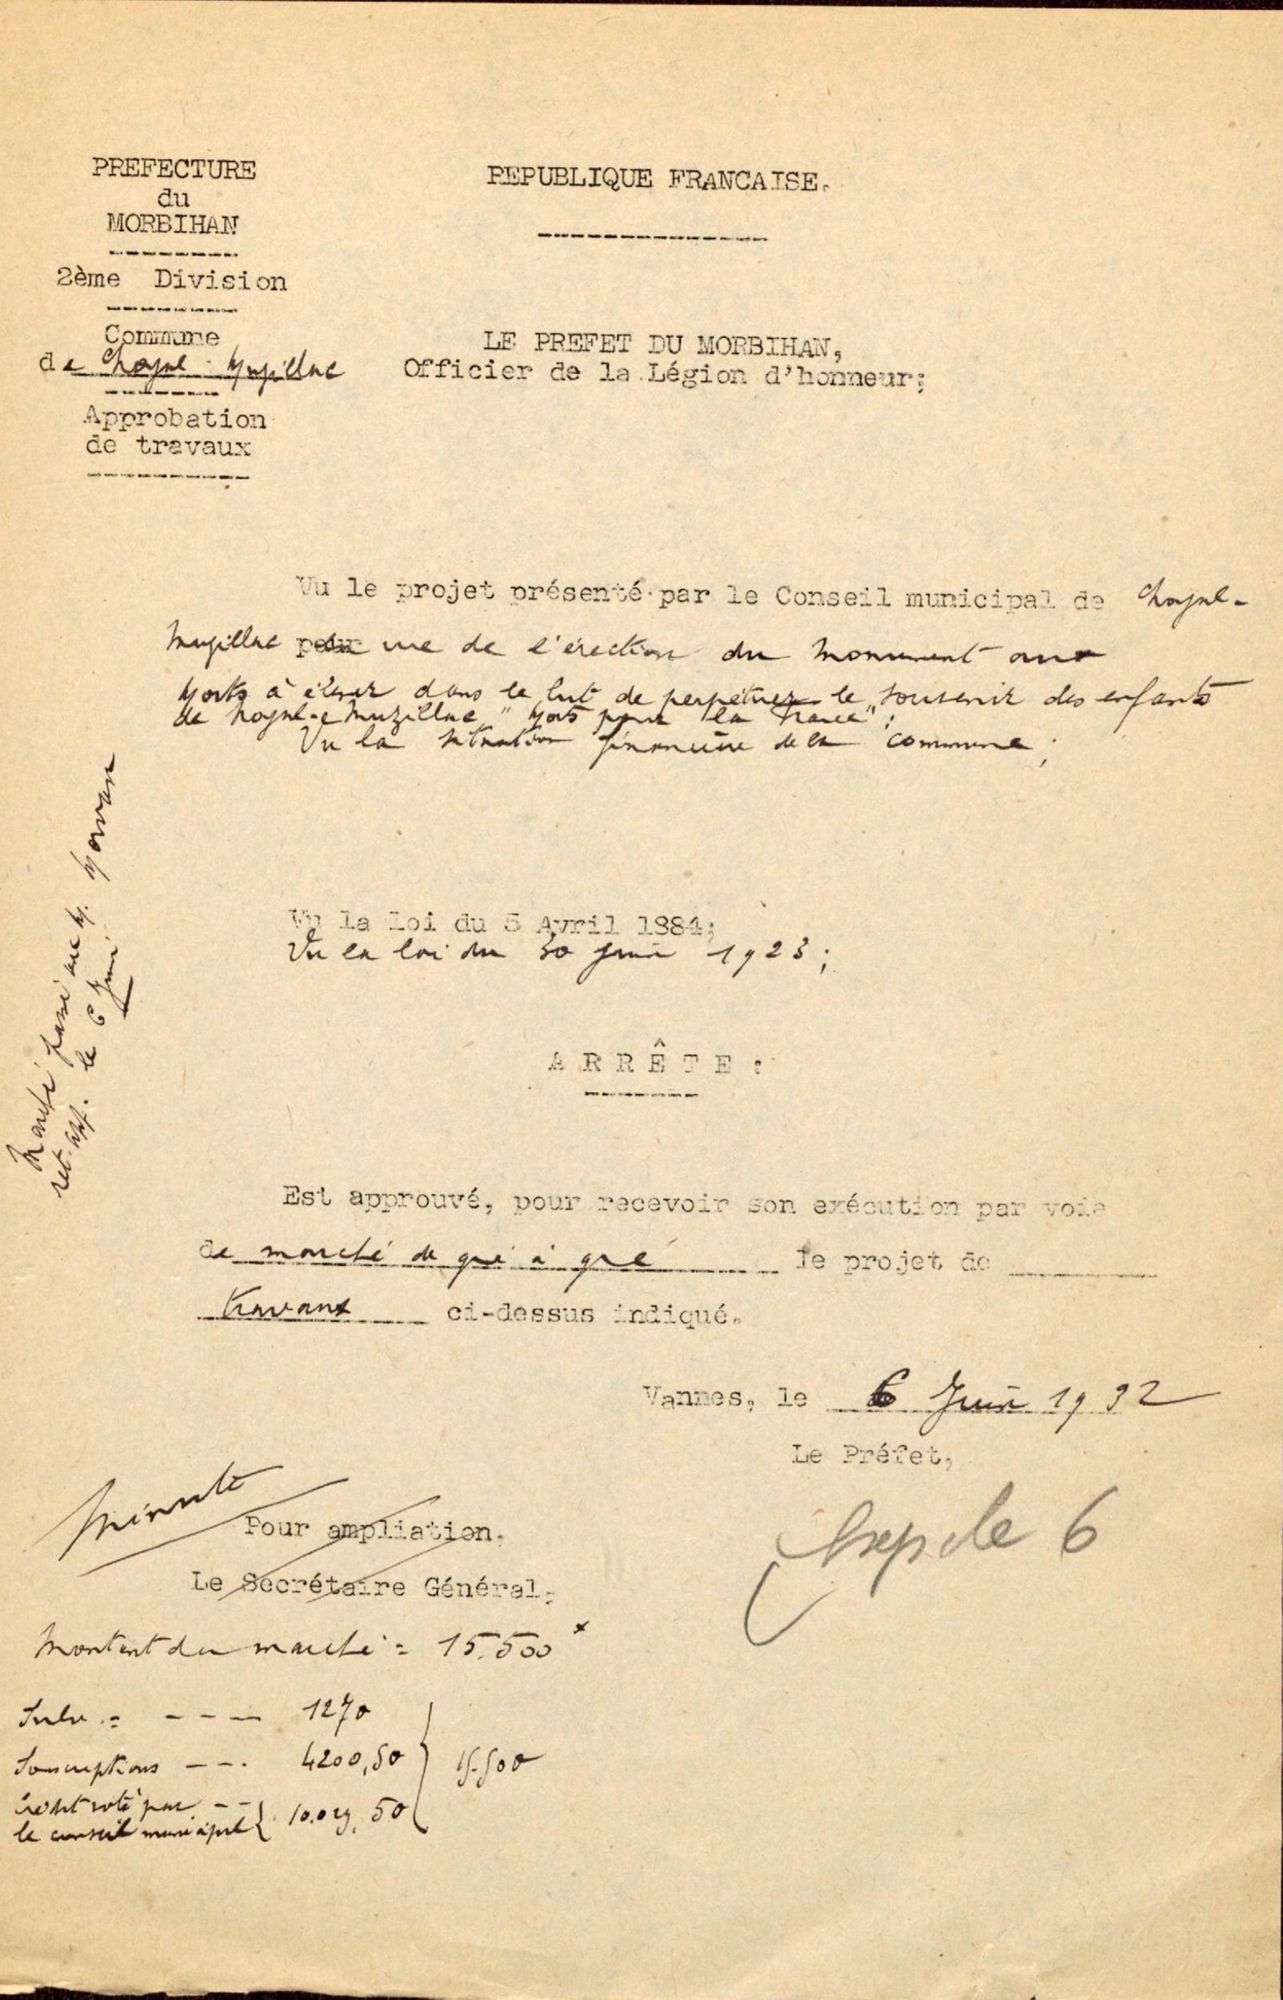 PREFECTURE
du
MORBIHAN
2ème Division
Commune
de Noyal-Muzillac
Approbation
de travaux
REPUBLIQUE FRANCAISE.
LE PREFET DU MORBIHAN,
Officier de la Légion d'honneur;
Vu le projet présenté par le Conseil municipal de Noyal-
Muzillac pour vue de l'érection du Monument aux
Morts à élever dans le but de perpétuer le souvenir des enfants
de Noyal-Muzillac "Morts pour la France";
Vu la situation financière de la commune;
Vu la loi du 5 Avril 1884;
Vu la loi du 30 juin 1923;
ARRÊTE:
Est approuvé, pour recevoir son exécution par voie
de marché de gré à gré le projet de
travaux ci-dessus indiqué.
Vannes, le 6 Juin 1932
Le Préfet,
Exp le 6
Minute
Pour ampliation.
Le Secrétaire Général,
Montant du marché = 15.500
Subv. = --- 1270
Souscriptions --- 4200,50
15.500
Crédit voté par --
le conseil municipal 10.029,50
Marché passé avec M. Morvan
le 6 Juin